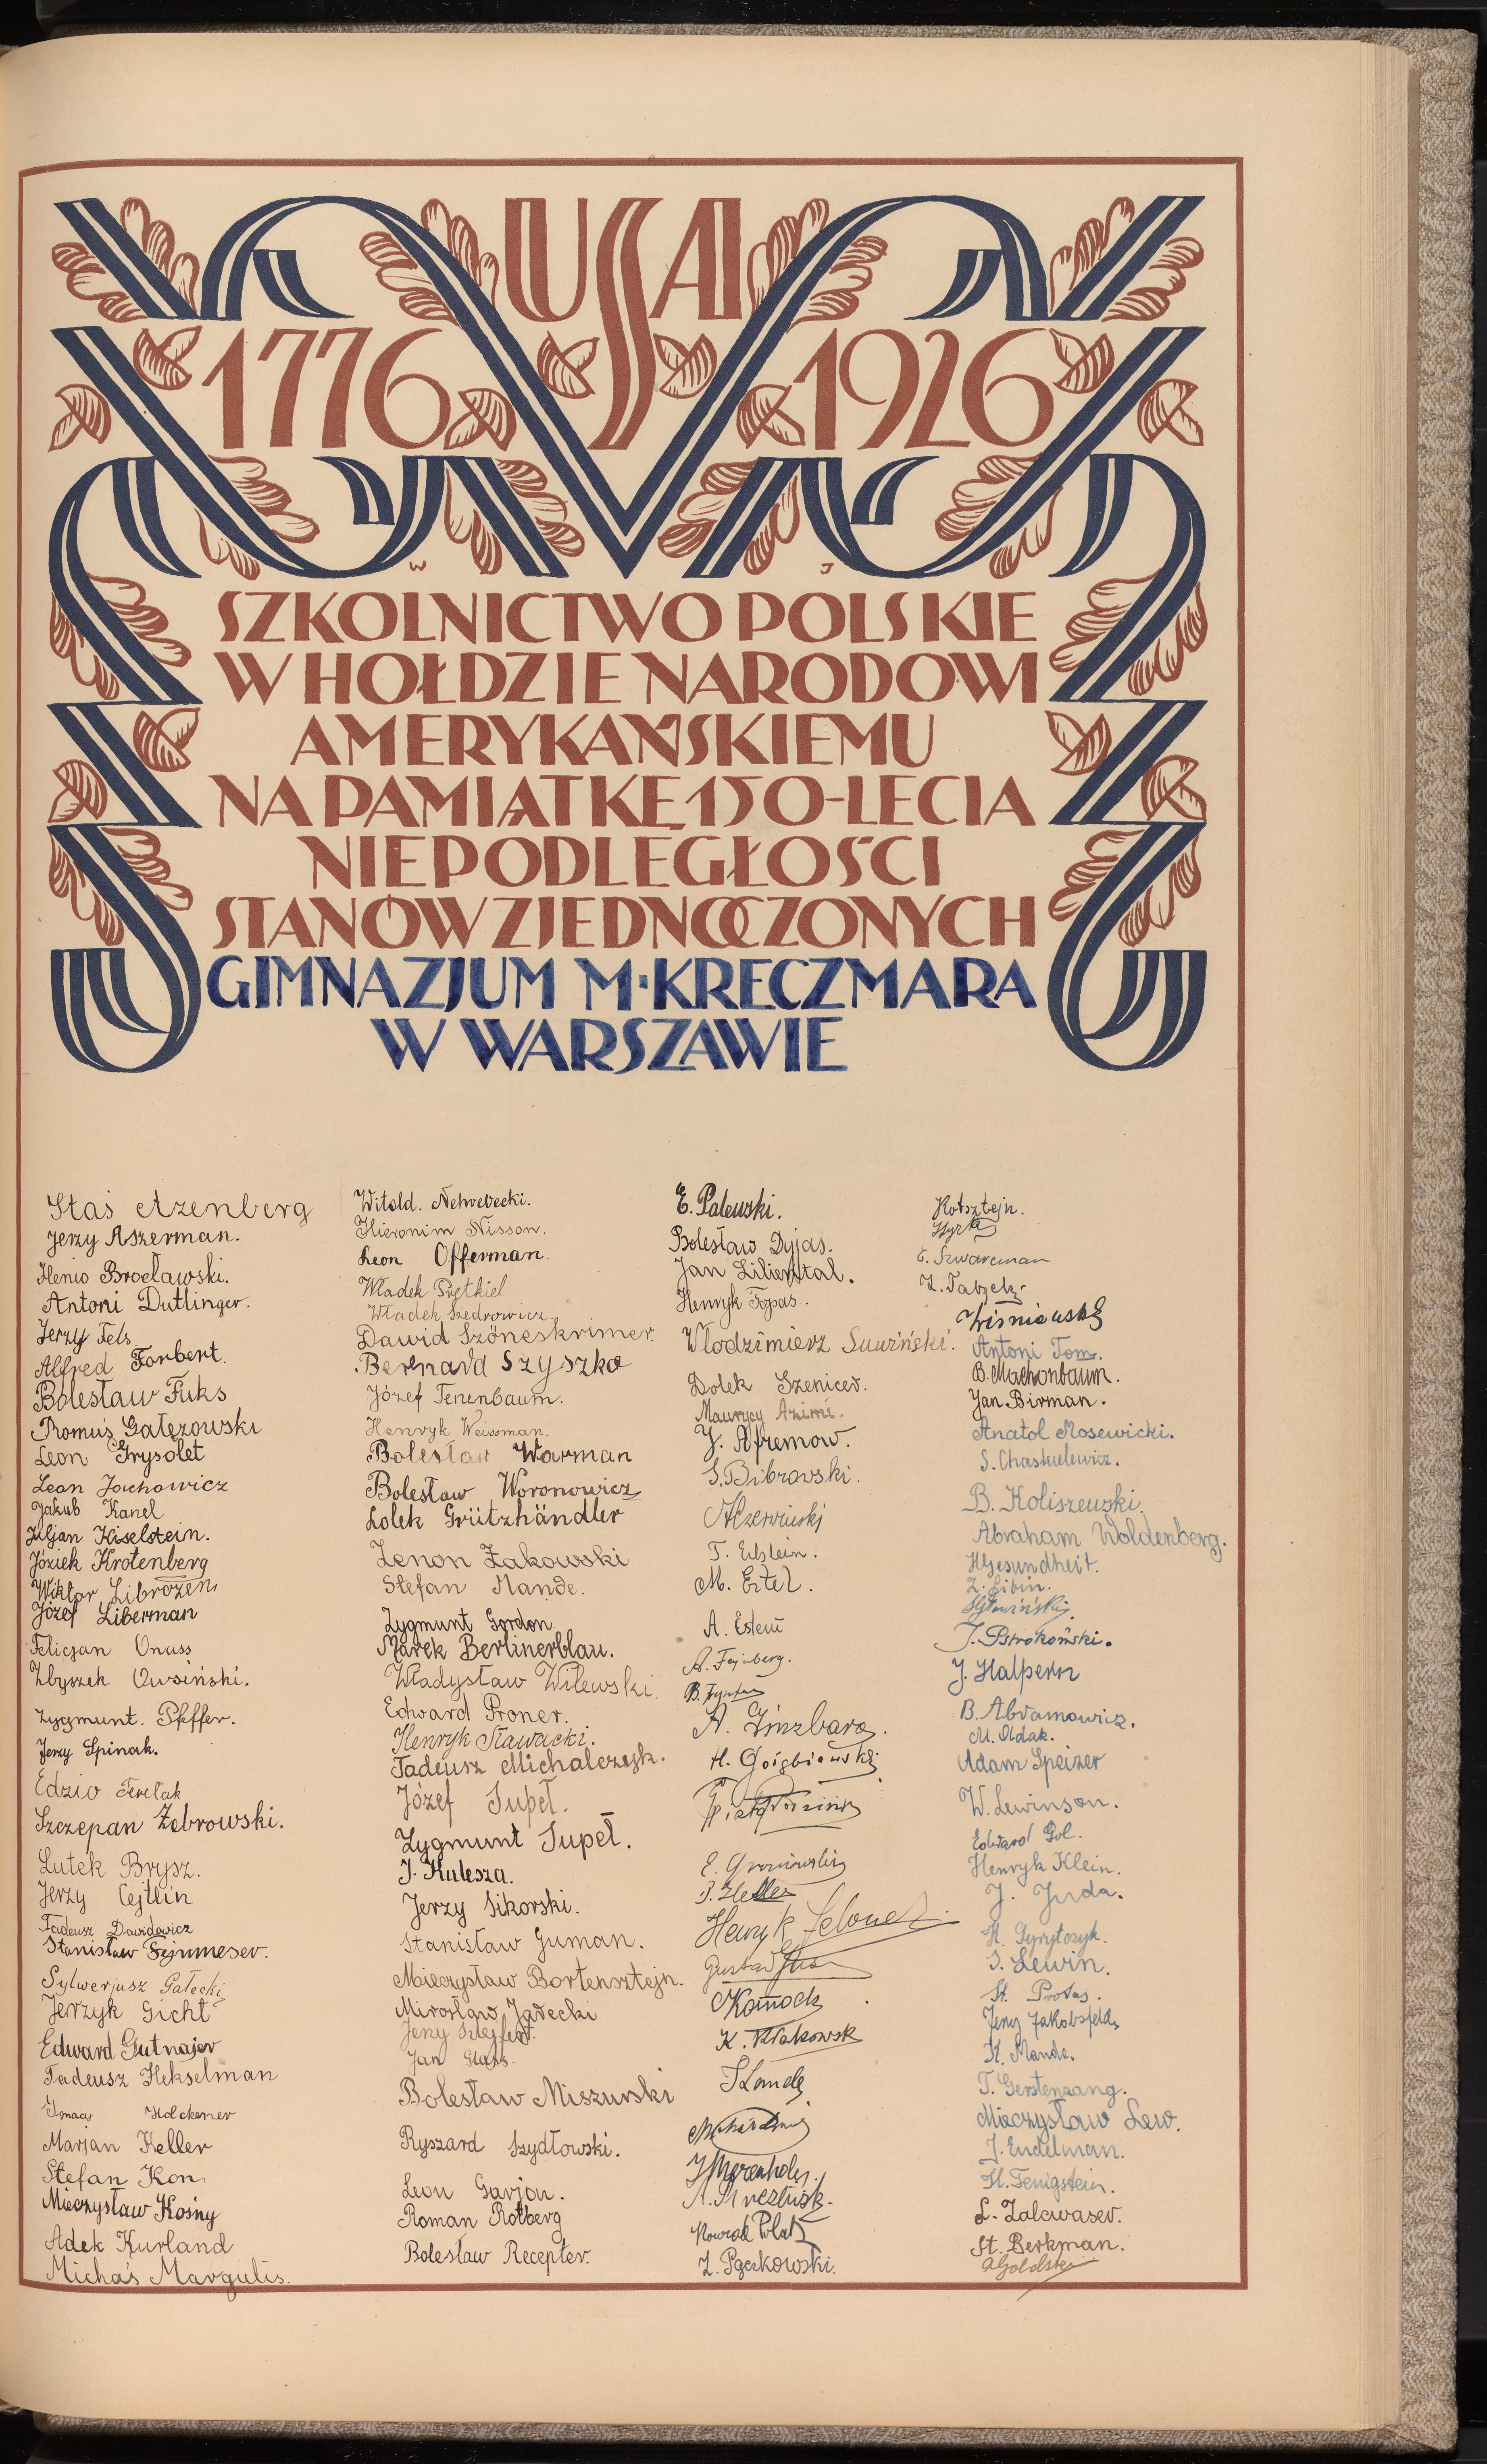 USA
1776 1926
W J
SZKOLNICTWO POLSKIE
W HOŁDZIE NARODOWI
AMERYKAŃSKIEMU
NA PAMIĄTKĘ 150-LECIA
NIEPODLEGŁOŚCI
STANÓW ZJEDNOCZONYCH
GIMNAZJUM M. KRECZMARA
W WARSZAWIE
Staś Azenberg
Jerzy Aszerman.
Henio Brocławski.
Antoni Dutlinger.
Jerzy Fels
Alfred Forbert.
Bolesław Fuks
Romuś Gałęzowski
Leon Grysolet
Leon Jochowicz
Jakub Kanel
Juljan Kiselstein.
Józiek Krotenberg
Wiktor Librozen
Józef Liberman
Felicjan Onass
Zbyszek Owsiński.
Zygmunt. Pfeffer.
Jerzy Spinak.
Edzio Terełak
Szczepan Żebrowski.
Lutek Brysz.
Jerzy Cejtlin
Tadeusz Dawidowicz
Stanisław
Sylwerjusz Gałecki
Jerzyk Gicht
Edward Gutnajer
Tadeusz Hekselman
Ignacy Holckener
Marjan Keller
Stefan Kon
Mieczysław Kośny
Adek Kurland
Michaś Margulis.
Witold.
Hieronim Nisson.
Leon Offerman.
Władek Prętkiel
Władek Szedrowicz
Dawid Szöneskrimer.
Bernard Szyszko
Józef Tenenbaum.
Henryk Weissman.
Bolesław Warman
Bolesław Woronowicz
Lolek Grützhändler
Zenon Żakowski
Stefan Mande.
Zygmunt Gordon
Marek Berlinerblau.
Władysław Wilewski
Edward Proner.
Henryk Sławacki.
Tadeusz Michalczyk.
Józef Supeł.
Zygmunt Supeł.
J. Kulesza.
Jerzy Sikorski.
Stanisław Guman.
Mieczysław Bortensztejn.
Mirosław Jarecki
Jerzy Szlejfer.
Jan Glass.
Bolesław Miszurski
Ryszard Szydłowski.
Leon Garjon.
Roman Rotberg
Bolesław Recepter.
E. Palewski.
Bolesław Dyjas.
Jan Liliental.
Henryk Topas.
Włodzimierz Suwiński.
Dolek Szenicer.
Maurycy Azimi.
J. Afremow.
S. Bibrowski.
T. Edelstein.
M. Ertel.
A. Estein
A. Fejnberg.
A. Ginzbarg.
E. Gronowski
P. Heller
Henryk
Gustaw
K. Krakowski
J. Lande
A.
Nowak
Z. Pączkowski.
Rotsztejn.
E. Szwarcman
Z.
Wiśniewski
Antoni Tom.
B. Machonbaum.
Jan Birman.
Anatol Mosewicki.
S. Chaskielewicz.
B. Koliszewski.
Abraham Woldenberg.
H Gesundheit.
Z. Libin.
J. Pstrokoński.
J. Halpern
B. Abramowicz.
M. Ołdak.
Adam Speizer
W. Lewinson.
Edward Gol.
Henryk Klein.
J. Juda.
S. Lewin.
St. Protas.
Jerzy Jakobsfeld
K. Mande.
T. Gerstenzang.
Mieczysław Lew.
J. Endelman.
H. Fenigstein.
L. Zalcwaser.
St. Berkman.